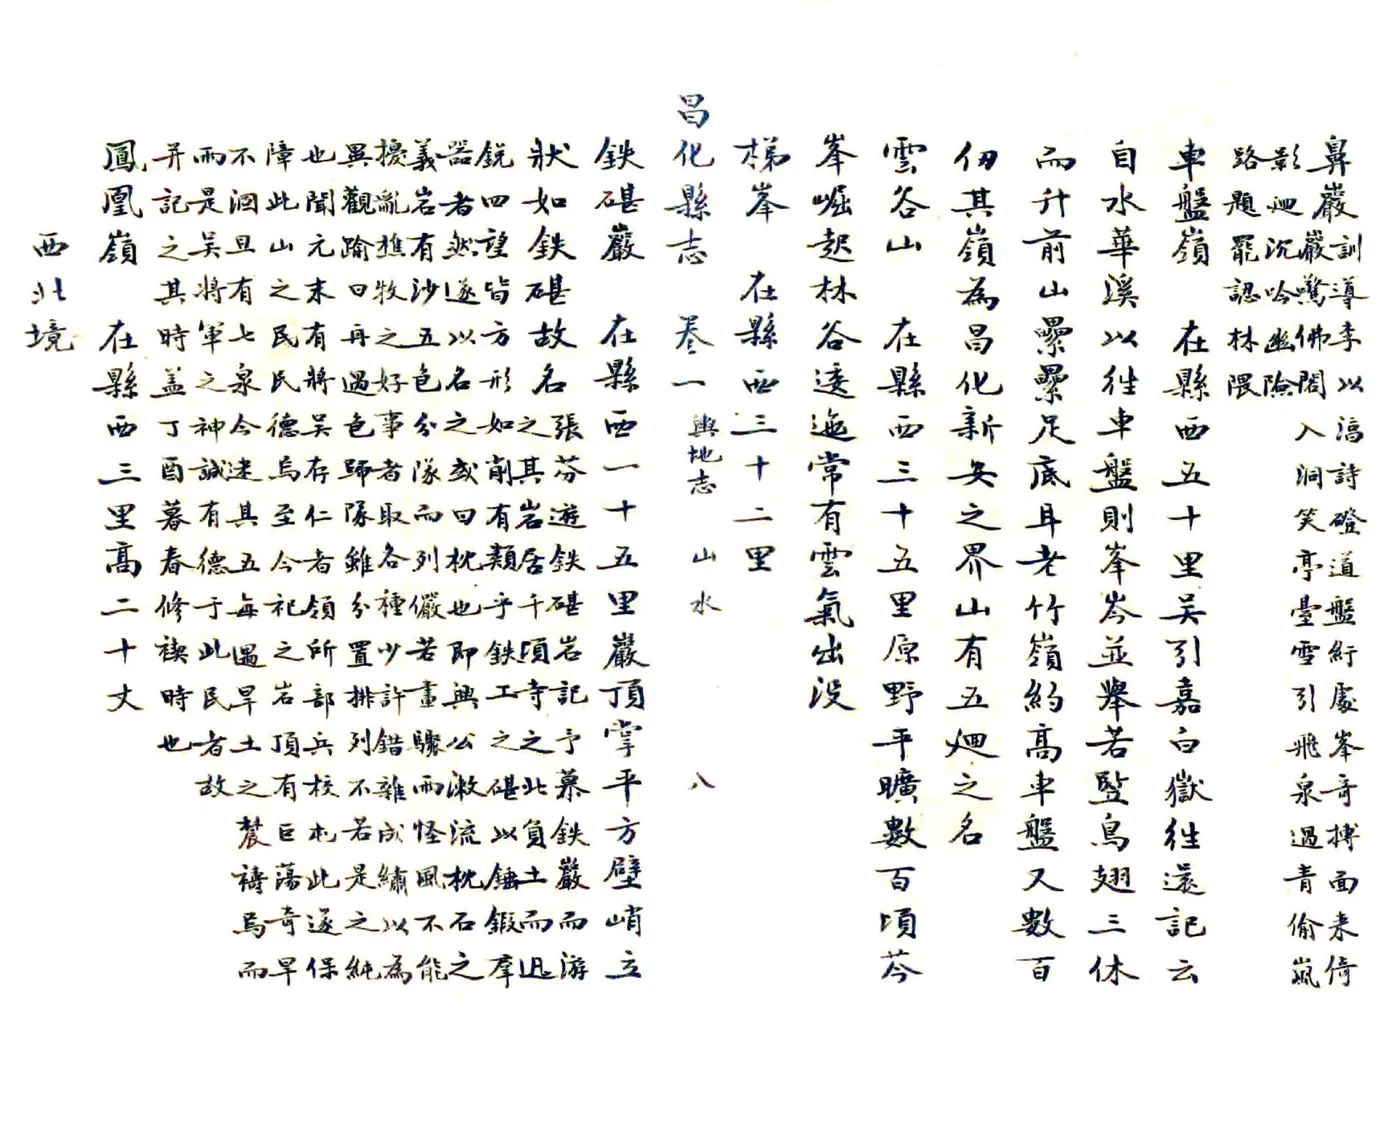 鼻巖訓導李以滴詩磴道盤紆處峯奇搏面来倚
巖驚佛閣入洞笑亭臺雪引飛泉過青偷嵐
影迴沉吟幽險
路題罷認林隈
車盤嶺　在縣西五十里吴引嘉白獄徃還記云
自水華溪以徃車盤則峯岑並舉若竪鳥翅三休
而升前山纍纍足底耳老竹嶺約高車盤又數百
仞其嶺為昌化新安之界山有五迴之名
雲谷山　在縣西三十五里原野平曠數百頃芩
峯崛起林谷逶迤常有雲氣出没
梯峯　在縣西三十二里
昌化縣志　卷一　輿地志　山水　八
鉄碪巖　在縣西一十五里巖頂掌平方壁峭立
狀如鉄碪故名張芬遊鉄碪岩記予慕鉄巖而游
之其岩居千頃寺之北負土而迅
銳四望皆方形如削有類乎鉄工之碪以錘鍜羣
器者然遂以名之或曰枕也即興公漱流枕石之
義岩有沙五色分隊而列儼若畫驟雨怪風不能
擾亂樵牧之好事者取各種少許錯雜成繡以為
異觀踰日再過色歸隊雖分置排列不若是之純
也聞元末有將吴存仁者領所部兵校札此遂保
障此山之民民德焉至今祀之岩頂有巨蕩奇旱
不涸旦有七泉今迷其五每遇旱土之農禱焉而
雨是吴將軍之神誠有德于此民者故
并記之其時盖丁酉暮春修禊時也
鳳凰嶺　在縣西三里高二十丈
西北境